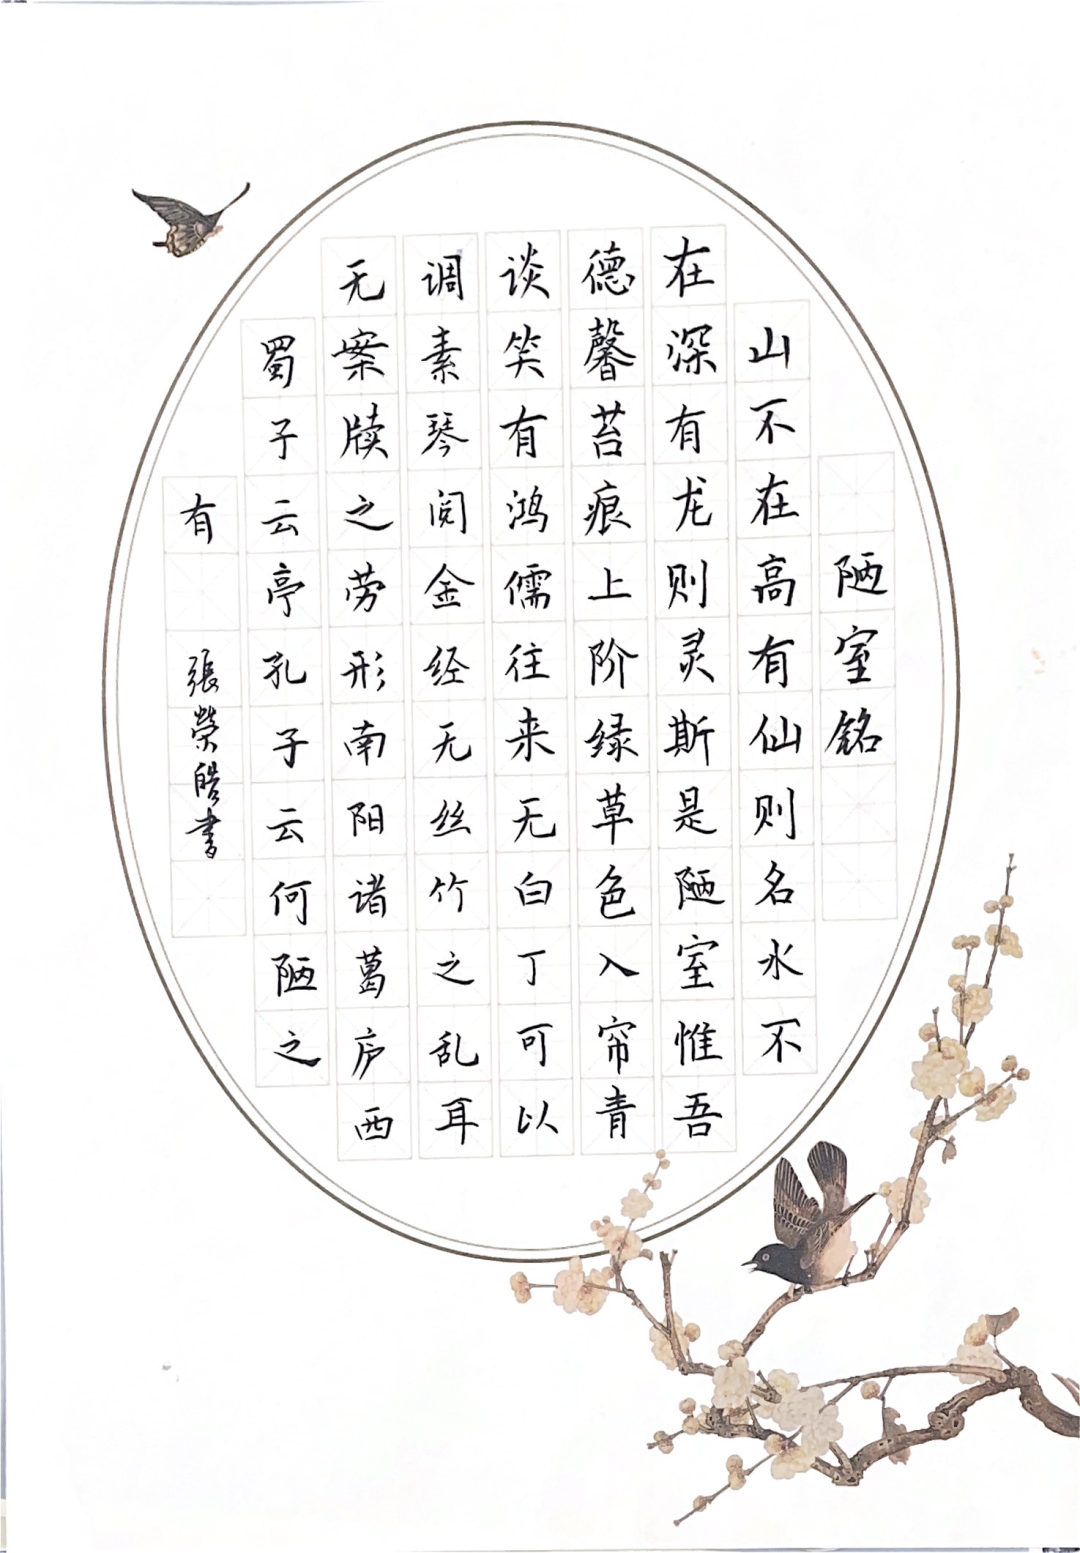 陋室铭
山不在高有仙则名水不
在深有龙则灵斯是陋室惟吾
德馨苔痕上阶绿草色入帘青
谈笑有鸿儒往来无白丁可以
调素琴阅金经无丝竹之乱耳
无案牍之劳形南阳诸葛庐西
蜀子云亭孔子云何陋之
有 張榮皓書